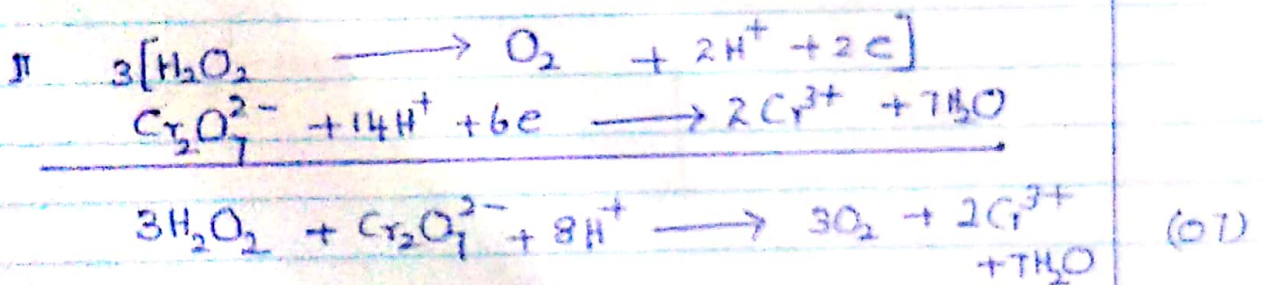 II 3[H₂O₂ ⟶ O₂ + 2H⁺ + 2e]
Cr₂O₇²⁻ + 14H⁺ + 6e ⟶ 2Cr³⁺ + 7H₂O
3H₂O₂ + Cr₂O₇²⁻ + 8H⁺ ⟶ 3O₂ + 2Cr³⁺ (07)
+ 7H₂O